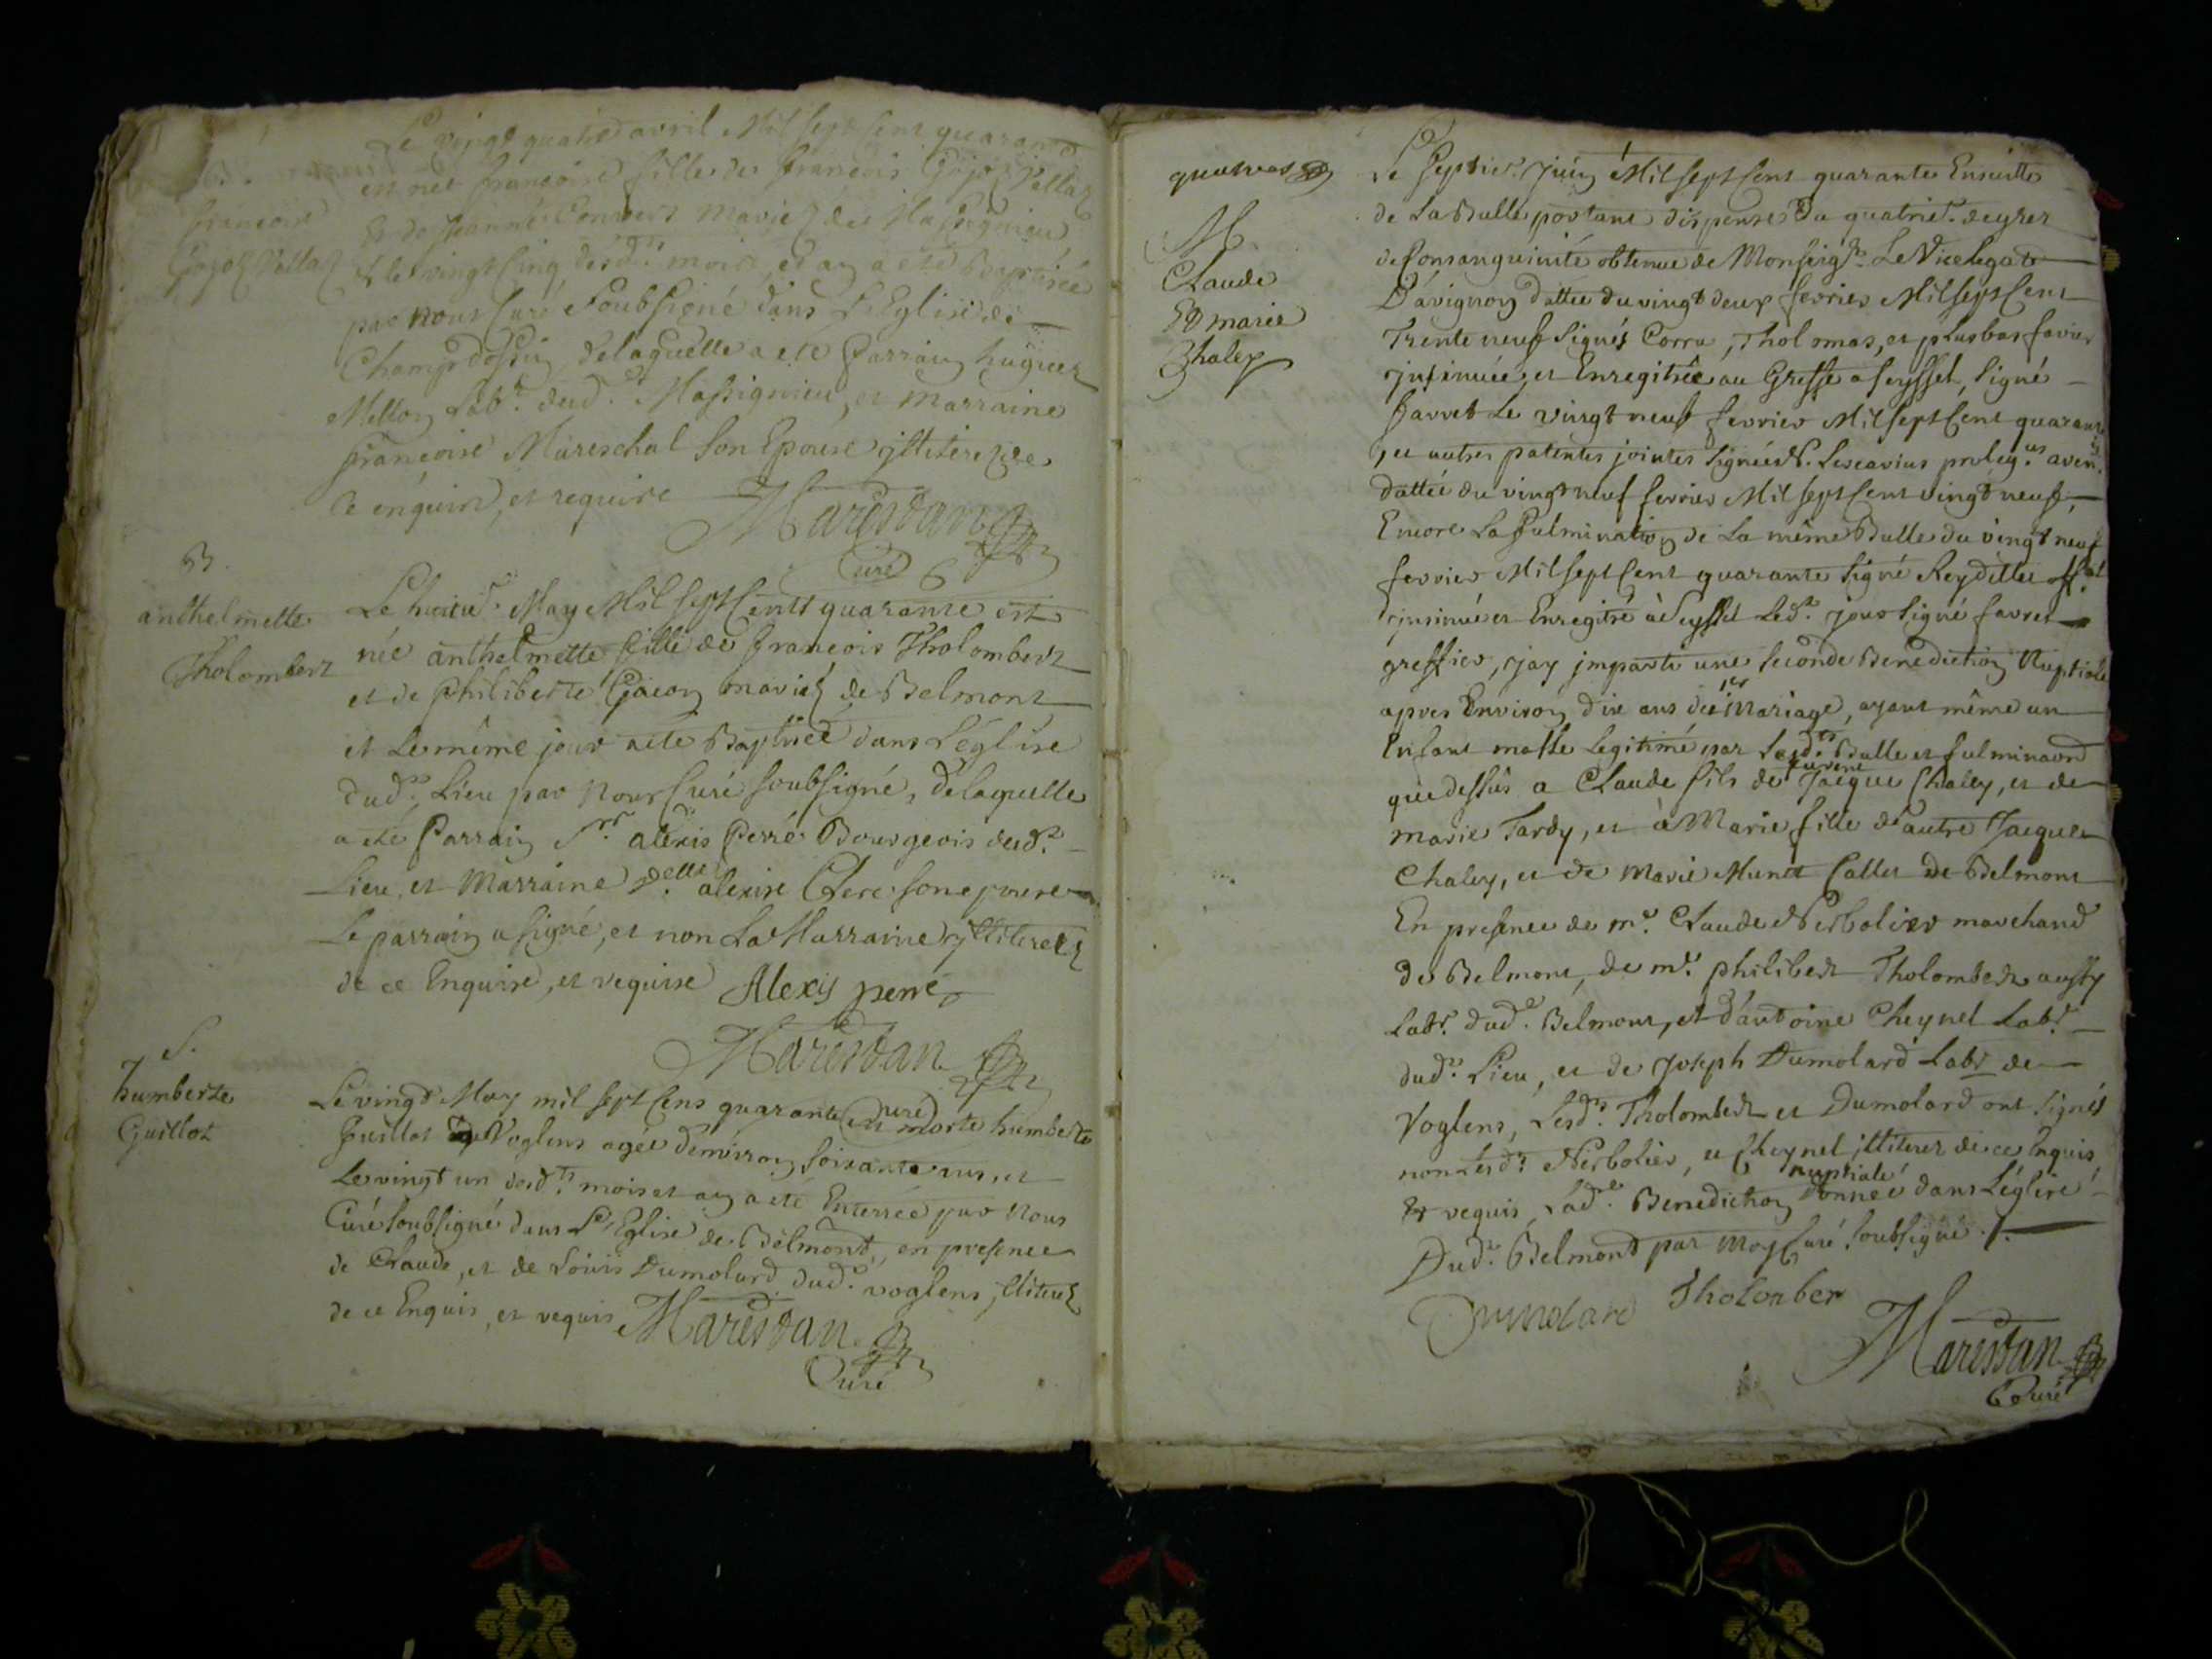 Le vingt quatre avril Mil sept cent quarante
est née francoise fille de françois Gojoz Pellaz
Et de Jeanne Convert mariez de Massignieu
Et le vingt cinq desd.ts mois et an a eté Baptisée
par nous Curé Soubsigné dans L'Eglise de
Champdossin delaquelle a eté Parrain hugues
Melloz Lab.r dud.t Massignieu, et marraine
françoise Mareschal son Epouse jlliterez de
ce enquis, et requise Marestan
Curé
B.
francoise
Gojoz Pellaz
B.
anthelmette
Tholombert
Le huitie.e May Mil sept Cents quarante est
née anthelmette fille de francois Tholombert
et de philiberte Gacon mariez de Belmont
et Le même jour a eté Baptisée dans L'église
dud.t Lieu par nous Curé soubsigné, delaquelle
a eté Parrain S.r alexis Perré Bourgeois dud.t
Lieu, et Marraine D.elle alexise Clerc son epouse
Le parrain a signé, et non La Marraine jlliterez
de ce Enquise, et requise Alexis perré
Marestan
Curé
S.
humberte
Guillot
Le vingt May mil sept Cens quarante est morte humberte
Guillot de Voglens agée d'environ soixante ans, et
Le vingt un desd.ts mois et an a eté Enterrée par Nous
Curé soubsigné dans L'Eglise de Belmont, en presence
de Claude, et de Louis Dumolard dud.t voglens, jlliterez
de ce Enquis, et requis Marestan
Curé
quatres
M
Claude
Et marie
Chaley
Le septie.e Juin Mil sept Cent quarante Ensuitte
de La Bulle portant dispense du quatrie.e degrez
de Consanguinité obtenue de Monseig.r Le Vicelegat
D'avignon dattée du vingt deux fevrier Mil sept Cent
Trente neuf signés Corra, Tholomas, et plus bas favier
jnsinuée, et Enregitrée au Greffe a seyssel, signé
favret Le vingt neuf fevrier Mil sept Cent quarante
, et autres patentes jointes signées N. Lescarius proleg.us aven.
dattée du vingt neuf fevrier Mil sept Cent vingt neuf,
Encore La fulmination de La même Bulle du vingt neuf
fevrier Mil sept Cent quarante signé Reydellet off.al
jnsinué et Enregitré à Seyssel Led.t jour signé favret
greffier, j'ay imparti une seconde Benediction Nuptiale
apres Environ dix ans de 1er Mariage, ayant même un
Enfant masle Legitimé par Lesd.ts Bulle et fulminaon
que dessus a Claude fils de Jacque Chaley, et de
marie Tardy, et à Marie fille d'autre Jacques
Chaley, et de Marie Munet Callet de Belmont
En presence de m.e Claude Nerbolier marchand
de Belmont, de m.e philibert Tholombert aussy
Lab.r dud.t Belmont, et d'antoine Cheynel Lab.r
dud.t Lieu, et de Joseph Dumolard Lab.r de
Voglens, Lesd.ts Tholombert et Dumolard ont signés
non Lesd.ts Nerbolier, et Cheynel jlliterez de ce Enquis
Et requis, Lad.e Benediction nuptiale donnée dans L'église
Dud.t Belmont par Moy Curé soubsigné ./.
Dumolard Tholonber
Marestan
Curé